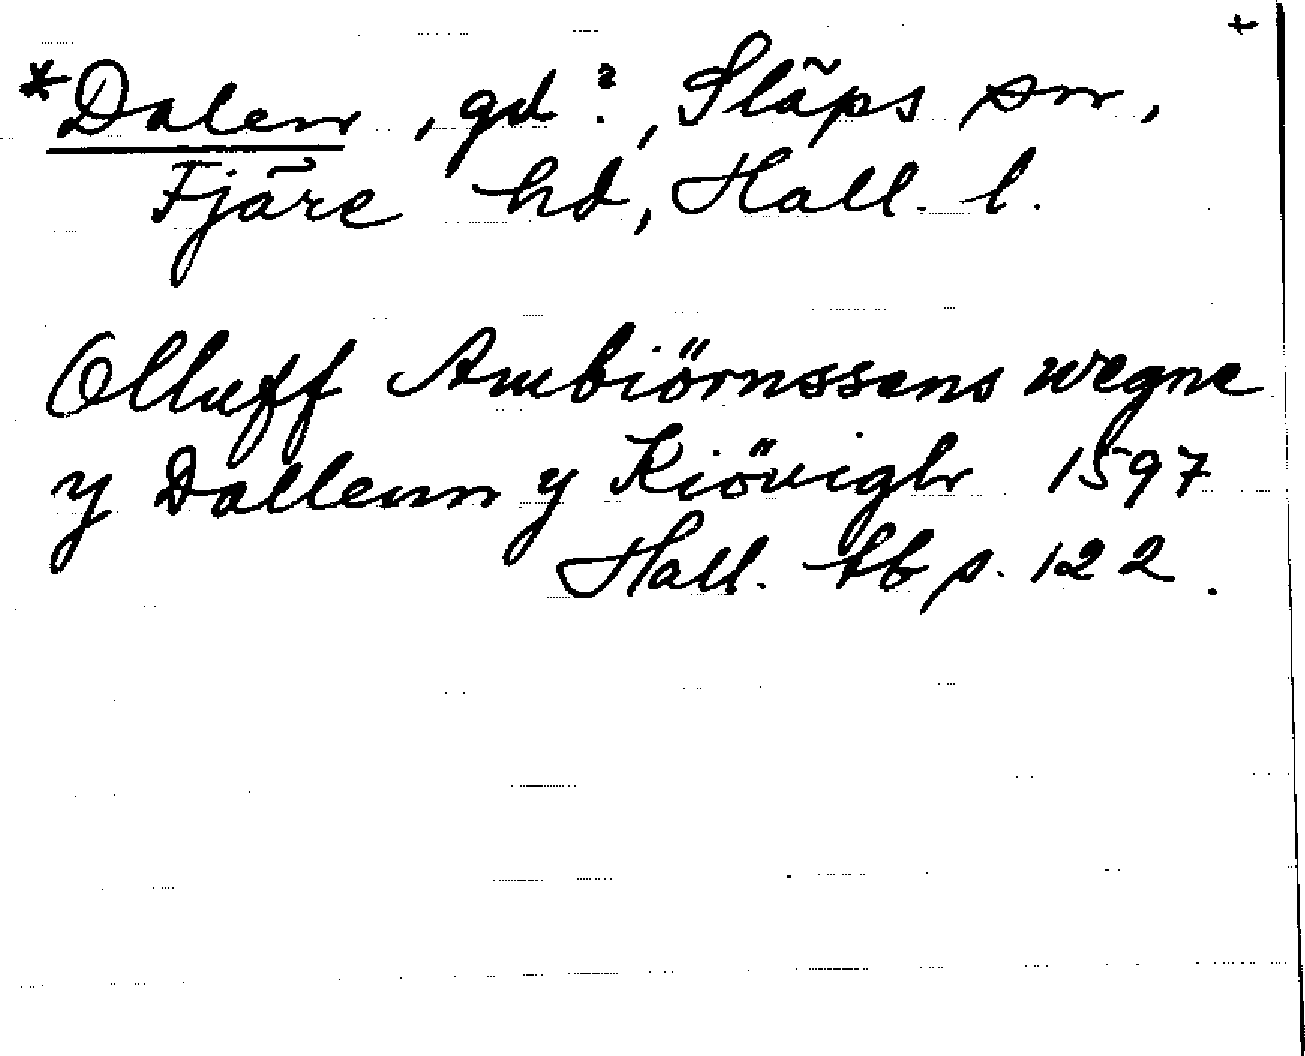 +
*Dalen, gd?, Släps sn,
Fjäre hd, Hall. l.
Olluff Ambiörnssens wegne
y Dallenn y Kiöuigh 1597
Hall. tb p. 122.